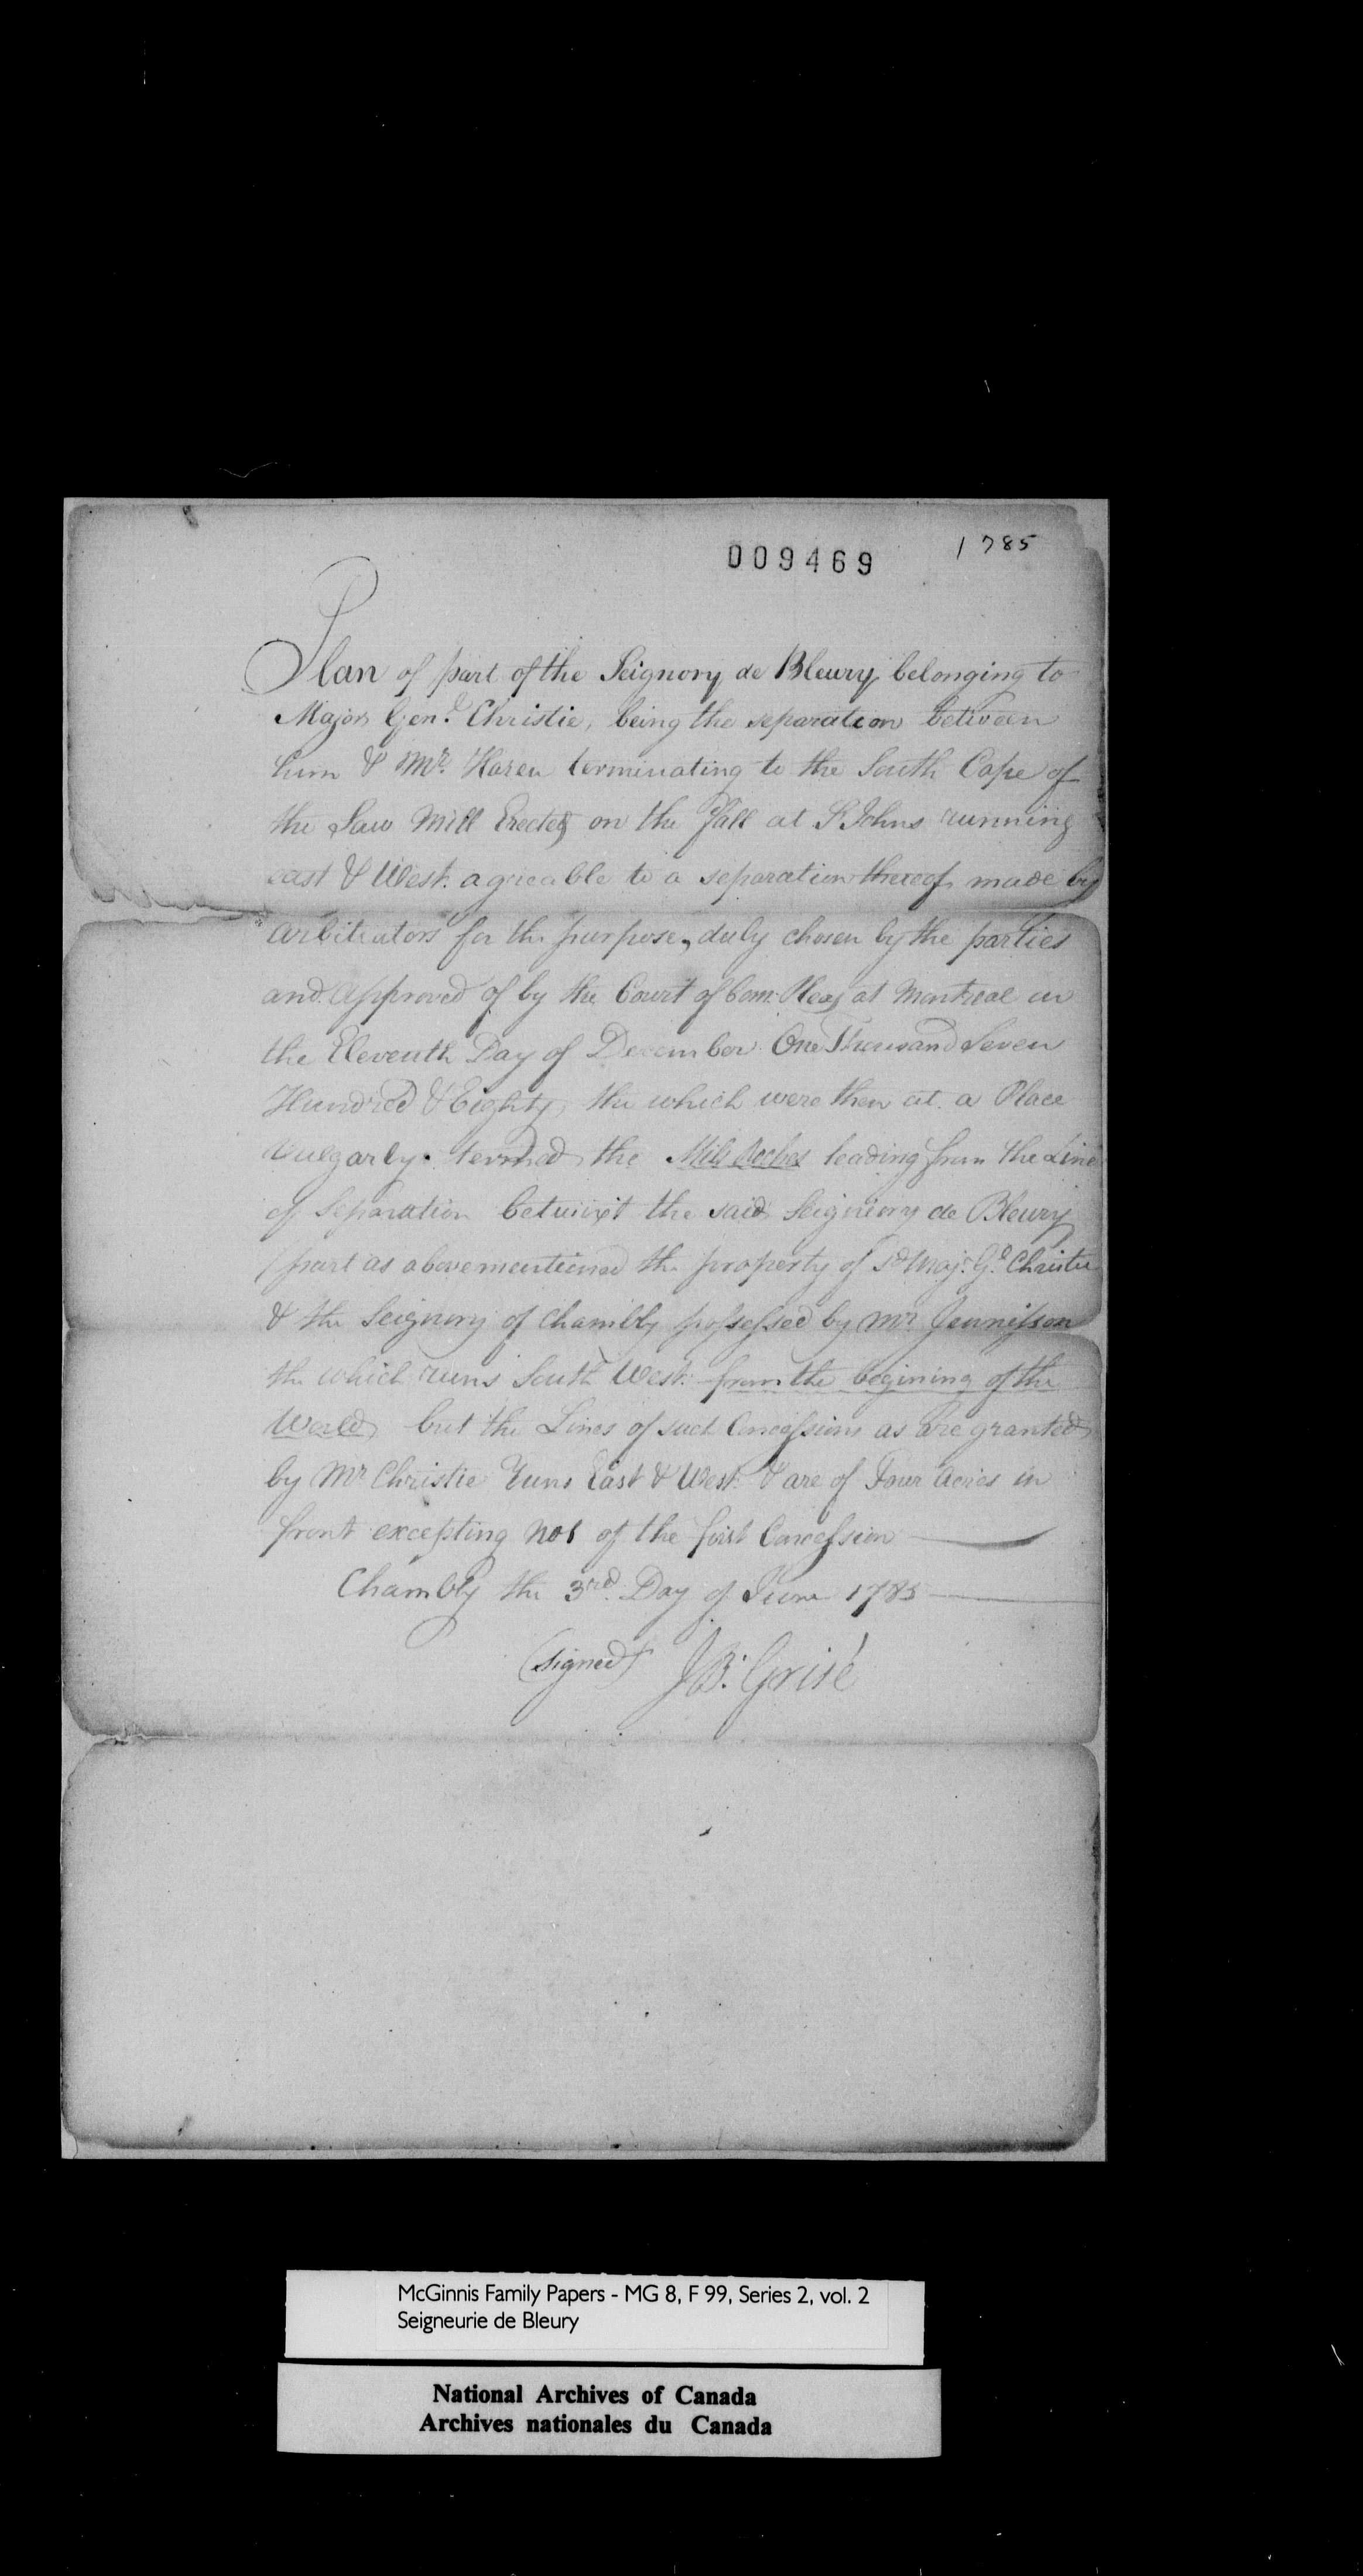 009469
1785
Plan of part of the Seignory de Bleury belonging to
Major Gen.l Christie, being the separation between
him & Mr. Hazen terminating to the South Cape of
the Saw Mill Erected on the Fall at St Johns running
east & West. agreable to a separation thereof made by
arbitrators for the purpose, duly chosen by the parties
and Approved of by the Court of Com: Pleas at Montreal on
the Eleventh Day of December One Thousand Seven
Hundred & Eighty, the which were then at a Place
vulgarly termed the Mile Roches leading from the Line
of Separation betwixt the said Seigniory de Bleury
/part as abovementioned the property of Sd Maj. Gl. Christie
& the Seignory of Chambly possessed by Mr. Jennisson
the which runs South West. from the begining of the
World, but the Lines of such Concessions as are granted
by Mr Christie Runs East & West. & are of Four Acres in
front excepting No 1 of the first Concession
Chambly the 3rd. Day of June 1785
(signed) J B: Grisé
McGinnis Family Papers - MG 8, F 99, Series 2, vol. 2
Seigneurie de Bleury
National Archives of Canada
Archives nationales du Canada